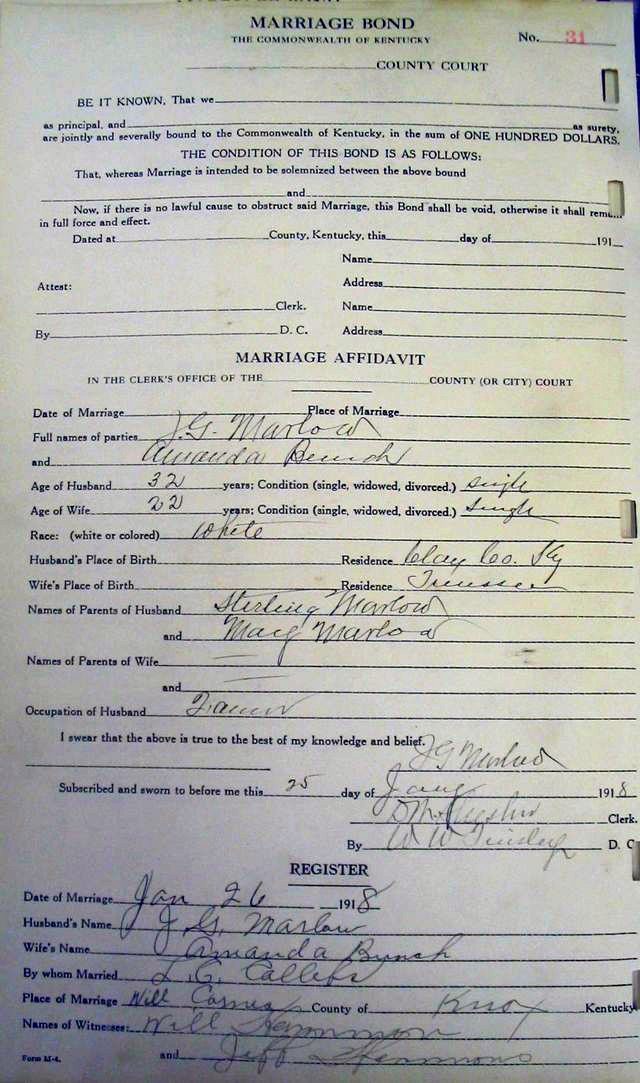 MARRIAGE BOND
THE COMMONWEALTH OF KENTUCKY No. 31
COUNTY COURT
BE IT KNOWN, That we
as principal, and as surety,
are jointly and severally bound to the Commonwealth of Kentucky, in the sum of ONE HUNDRED DOLLARS.
THE CONDITION OF THIS BOND IS AS FOLLOWS:
That, whereas Marriage is intended to be solemnized between the above bound
and
Now, if there is no lawful cause to obstruct said Marriage, this Bond shall be void, otherwise it shall
in full force and effect.
Dated at County, Kentucky, this day of 191
Name
Attest: Address
Clerk. Name
By D. C. Address
MARRIAGE AFFIDAVIT
IN THE CLERK'S OFFICE OF THE COUNTY (OR CITY) COURT
Date of Marriage Place of Marriage
Full names of parties J. G. Marlow
and Amanda Bunch
Age of Husband 32 years; Condition (single, widowed, divorced.) single
Age of Wife 22 years; Condition (single, widowed, divorced.) Single
Race: (white or colored) White
Husband's Place of Birth Residence Clay Co. Ky
Wife's Place of Birth Residence
Names of Parents of Husband Sterling Marlow
and Marlow
Names of Parents of Wife
and
Occupation of Husband Farmer
I swear that the above is true to the best of my knowledge and belief. J G Marlow
Subscribed and sworn to before me this 25 day of 1918
Clerk.
By W W Tinsley D. C
REGISTER
Date of Marriage Jan 26 1918
Husband's Name J. G. Marlow
Wife's Name Amanda Bunch
By whom Married
Place of Marriage Will County of Knox Kentucky
Names of Witnesses: Will
and Jeff
Form M-4.